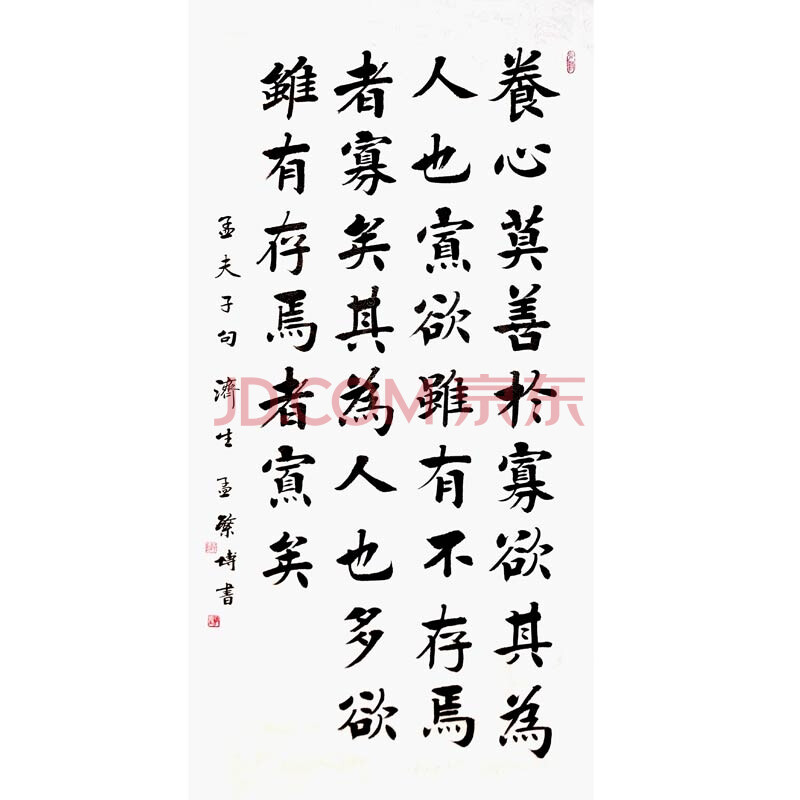 養心莫善於寡欲其為
人也寡欲雖有不存焉
者寡矣其為人也多欲
雖有存焉者寡矣
孟夫子句 濟生孟繁博書
JD.COM 京东